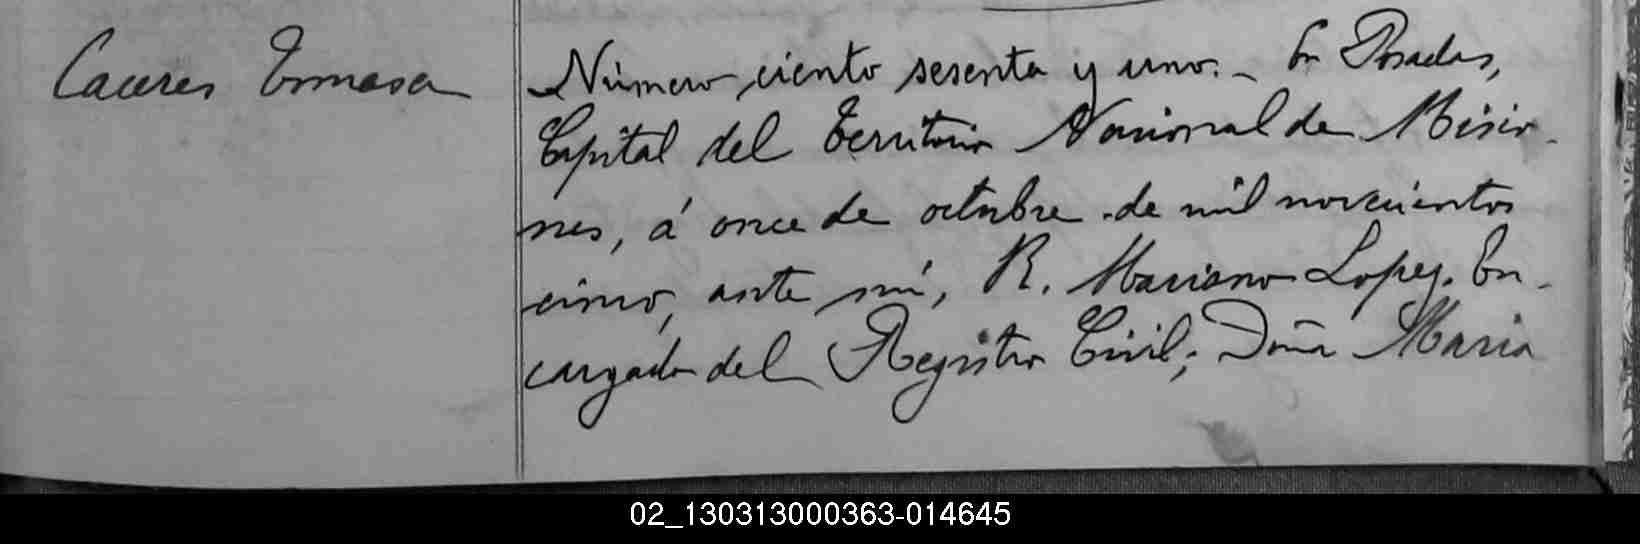 Caceres Tomasa
Número ciento sesenta y uno. - En Posadas,
Capital del Territorio Nacional de Misio-
nes, á once de octubre de mil novecientos
cinco, ante mí, R. Mariano Lopez, En-
cargado del Registro Civil; Doña Maria
02_130313000363-014645